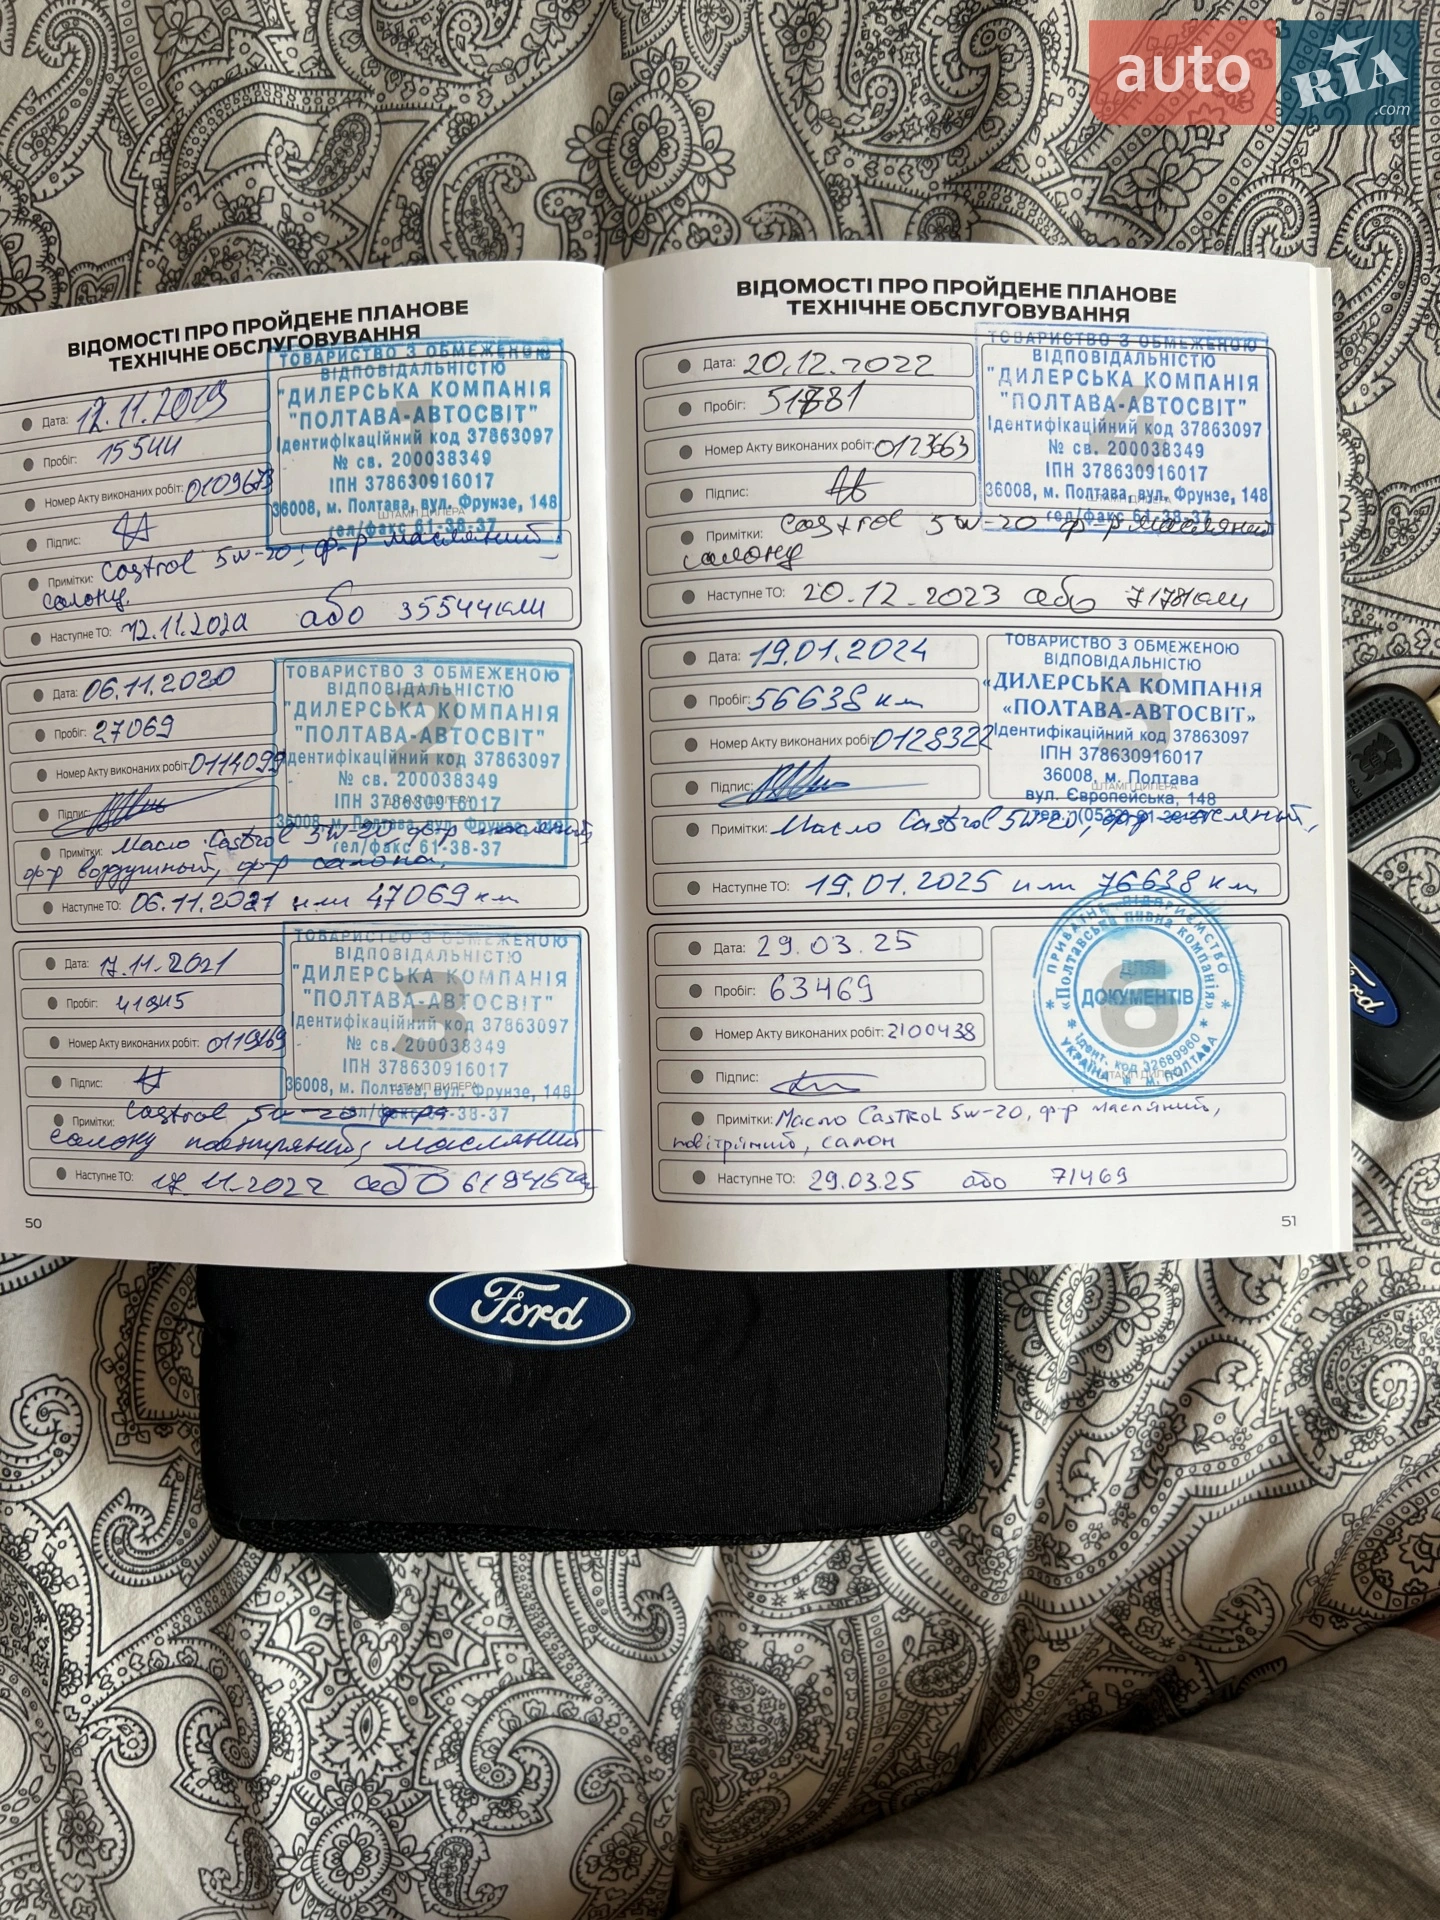 auto RIA.com
ВІДОМОСТІ ПРО ПРОЙДЕНЕ ПЛАНОВЕ
ТЕХНІЧНЕ ОБСЛУГОВУВАННЯ
Дата: 12.11.2019
Пробіг: 15544
Номер Акту виконаних робіт: 0109673
Підпис:
Примітки: Castrol 5w-20; ф-р масляний
салону.
Наступне ТО: 12.11.2020 або 35544км
1
ТОВАРИСТВО З ОБМЕЖЕНОЮ
ВІДПОВІДАЛЬНІСТЮ
"ДИЛЕРСЬКА КОМПАНІЯ
"ПОЛТАВА-АВТОСВІТ"
Ідентифікаційний код 37863097
№ св. 200038349
ІПН 378630916017
36008, м. Полтава, вул. Фрунзе, 148
ШТАМП ДИЛЕРА
тел/факс 61-38-37
Дата: 06.11.2020
Пробіг: 27069
Номер Акту виконаних робіт: 0114099
Підпис:
Примітки: Масло Castrol 5W-20, ф-р масляный,
ф-р воздушный, ф-р салона.
Наступне ТО: 06.11.2021 или 47069 км
2
ТОВАРИСТВО З ОБМЕЖЕНОЮ
ВІДПОВІДАЛЬНІСТЮ
"ДИЛЕРСЬКА КОМПАНІЯ
"ПОЛТАВА-АВТОСВІТ"
Ідентифікаційний код 37863097
№ св. 200038349
ІПН 378630916017
36008, м. Полтава, вул. Фрунзе, 148
тел/факс 61-38-37
Дата: 17.11.2021
Пробіг: 41945
Номер Акту виконаних робіт: 0119469
Підпис:
Примітки: Castrol 5w-20 ф-ра
салону повітряний, масляний
Наступне ТО: 17.11.2022 або 61945км
3
ТОВАРИСТВО З ОБМЕЖЕНОЮ
ВІДПОВІДАЛЬНІСТЮ
"ДИЛЕРСЬКА КОМПАНІЯ
"ПОЛТАВА-АВТОСВІТ"
Ідентифікаційний код 37863097
№ св. 200038349
ІПН 378630916017
36008, м. Полтава, вул. Фрунзе, 148
ШТАМП ДИЛЕРА
тел/факс 61-38-37
50
ВІДОМОСТІ ПРО ПРОЙДЕНЕ ПЛАНОВЕ
ТЕХНІЧНЕ ОБСЛУГОВУВАННЯ
Дата: 20.12.2022
Пробіг: 51781
Номер Акту виконаних робіт: 0123663
Підпис:
Примітки: Castrol 5w-20 ф-р масляний
салону
Наступне ТО: 20.12.2023 або 71781км
4
ТОВАРИСТВО З ОБМЕЖЕНОЮ
ВІДПОВІДАЛЬНІСТЮ
"ДИЛЕРСЬКА КОМПАНІЯ
"ПОЛТАВА-АВТОСВІТ"
Ідентифікаційний код 37863097
№ св. 200038349
ІПН 378630916017
36008, м. Полтава, вул. Фрунзе, 148
ШТАМП ДИЛЕРА
тел/факс 61-38-37
Дата: 19.01.2024
Пробіг: 56638 км
Номер Акту виконаних робіт: 0128322
Підпис:
Примітки: Масло Castrol 5W-20, ф-р масляный,
Наступне ТО: 19.01.2025 или 76638 км
5
ТОВАРИСТВО З ОБМЕЖЕНОЮ
ВІДПОВІДАЛЬНІСТЮ
«ДИЛЕРСЬКА КОМПАНІЯ
«ПОЛТАВА-АВТОСВІТ»
Ідентифікаційний код 37863097
ІПН 378630916017
36008, м. Полтава
ШТАМП ДИЛЕРА
вул. Європейська, 148
Дата: 29.03.25
Пробіг: 63469
Номер Акту виконаних робіт: 2100438
Підпис:
Примітки: Масло Castrol 5w-20, ф-р масляний,
повітряний, салон
Наступне ТО: 29.03.25 або 71469
6
ПРИВАТНЕ ПІДПРИЄМСТВО
«Полтавська пивна компанія»
ДЛЯ
ДОКУМЕНТІВ
Ідент. код 32689960
УКРАЇНА * м. ПОЛТАВА
ШТАМП ДИЛЕРА
51
Ford
Ford